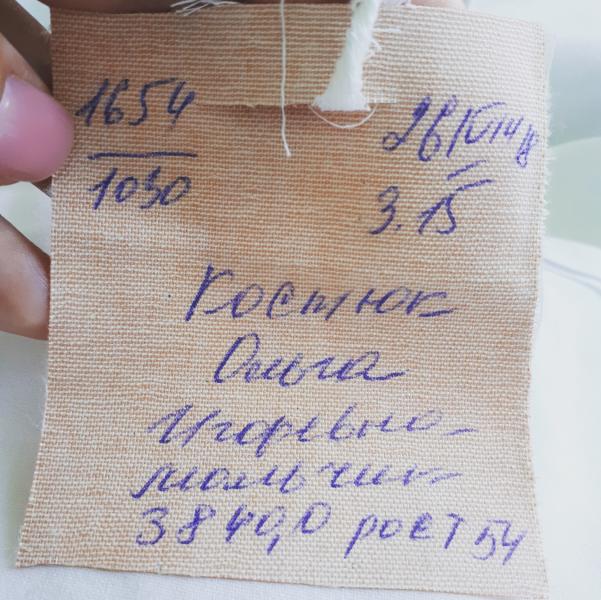 1654
1030
3.15
Костюк
Ольга
Игоревна
мальчик
3840,0 рост 54